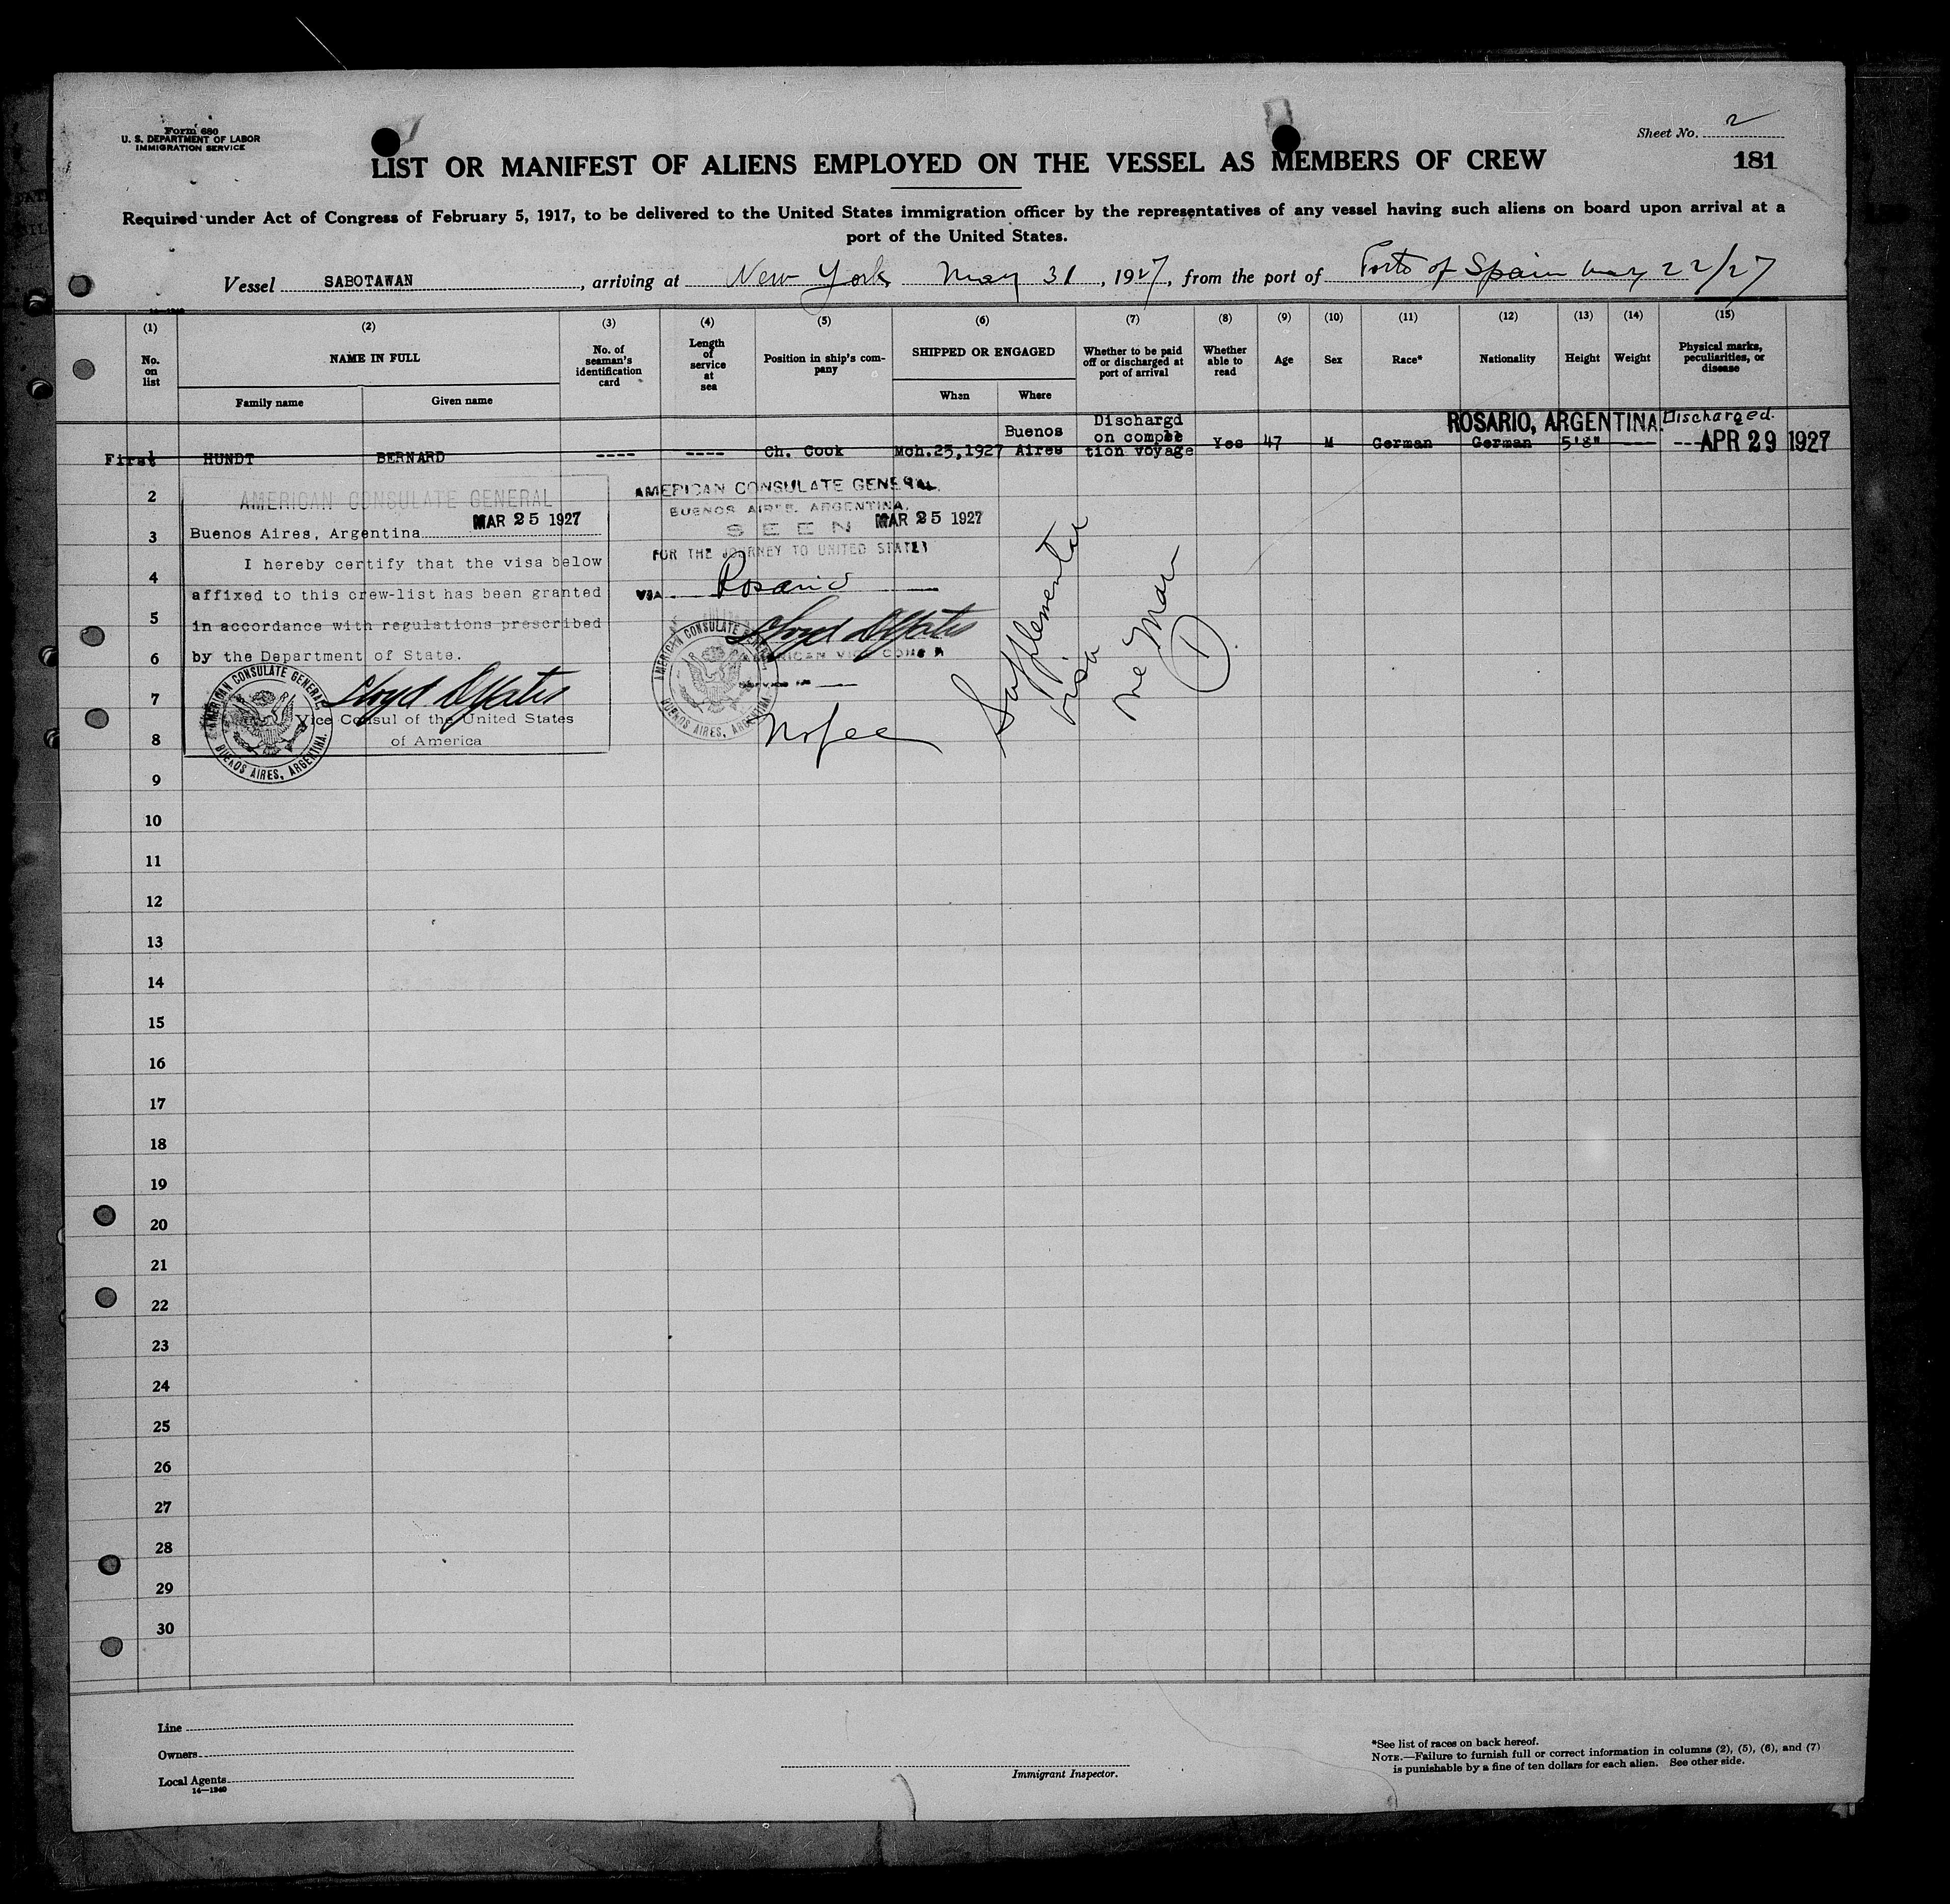 Form 680
U. S. DEPARTMENT OF LABOR
IMMIGRATION SERVICE
Sheet No. 2
LIST OR MANIFEST OF ALIENS EMPLOYED ON THE VESSEL AS MEMBERS OF CREW
181
Required under Act of Congress of February 5, 1917, to be delivered to the United States immigration officer by the representatives of any vessel having such aliens on board upon arrival at a
port of the United States.
Vessel SABOTAWAN, arriving at New York May 31, 1927, from the port of Porto of Spain May 22/27
(1) (2) (3) (4) (5) (6) (7) (8) (9) (10) (11) (12) (13) (14) (15)
No. on list
NAME IN FULL
Family name
Given name
No. of seaman's identification card
Length of service at sea
Position in ship's company
SHIPPED OR ENGAGED
When
Where
Whether to be paid off or discharged at port of arrival
Whether able to read
Age
Sex
Race*
Nationality
Height
Weight
Physical marks, peculiarities, or disease
ROSARIO, ARGENTINA. Discharged.
APR 29 1927
First HUNDT BERNARD ---- ---- Ch. Cook Mch.25,1927 Buenos Aires Dischargd on comple tion voyage Yes 47 M German German 5'8" ---- ---
AMERICAN CONSULATE GENERAL
Buenos Aires, Argentina MAR 25 1927
I hereby certify that the visa below
affixed to this crew-list has been granted
in accordance with regulations prescribed
by the Department of State.
Vice Consul of the United States
of America
AMERICAN CONSULATE GENERAL
BUENOS AIRES, ARGENTINA.
AMERICAN CONSULATE GENERAL
BUENOS AIRES, ARGENTINA.
SEEN MAR 25 1927
FOR THE JOURNEY TO UNITED STATES
VIA Rosario
AMERICAN VICE CONSUL
AMERICAN CONSULATE GENERAL
BUENOS AIRES, ARGENTINA.
No fee
Supplemental
visa
one man
2
3
4
5
6
7
8
9
10
11
12
13
14
15
16
17
18
19
20
21
22
23
24
25
26
27
28
29
30
Line
Owners
Local Agents
14—1240
Immigrant Inspector.
*See list of races on back hereof.
NOTE.—Failure to furnish full or correct information in columns (2), (5), (6), and (7)
is punishable by a fine of ten dollars for each alien. See other side.